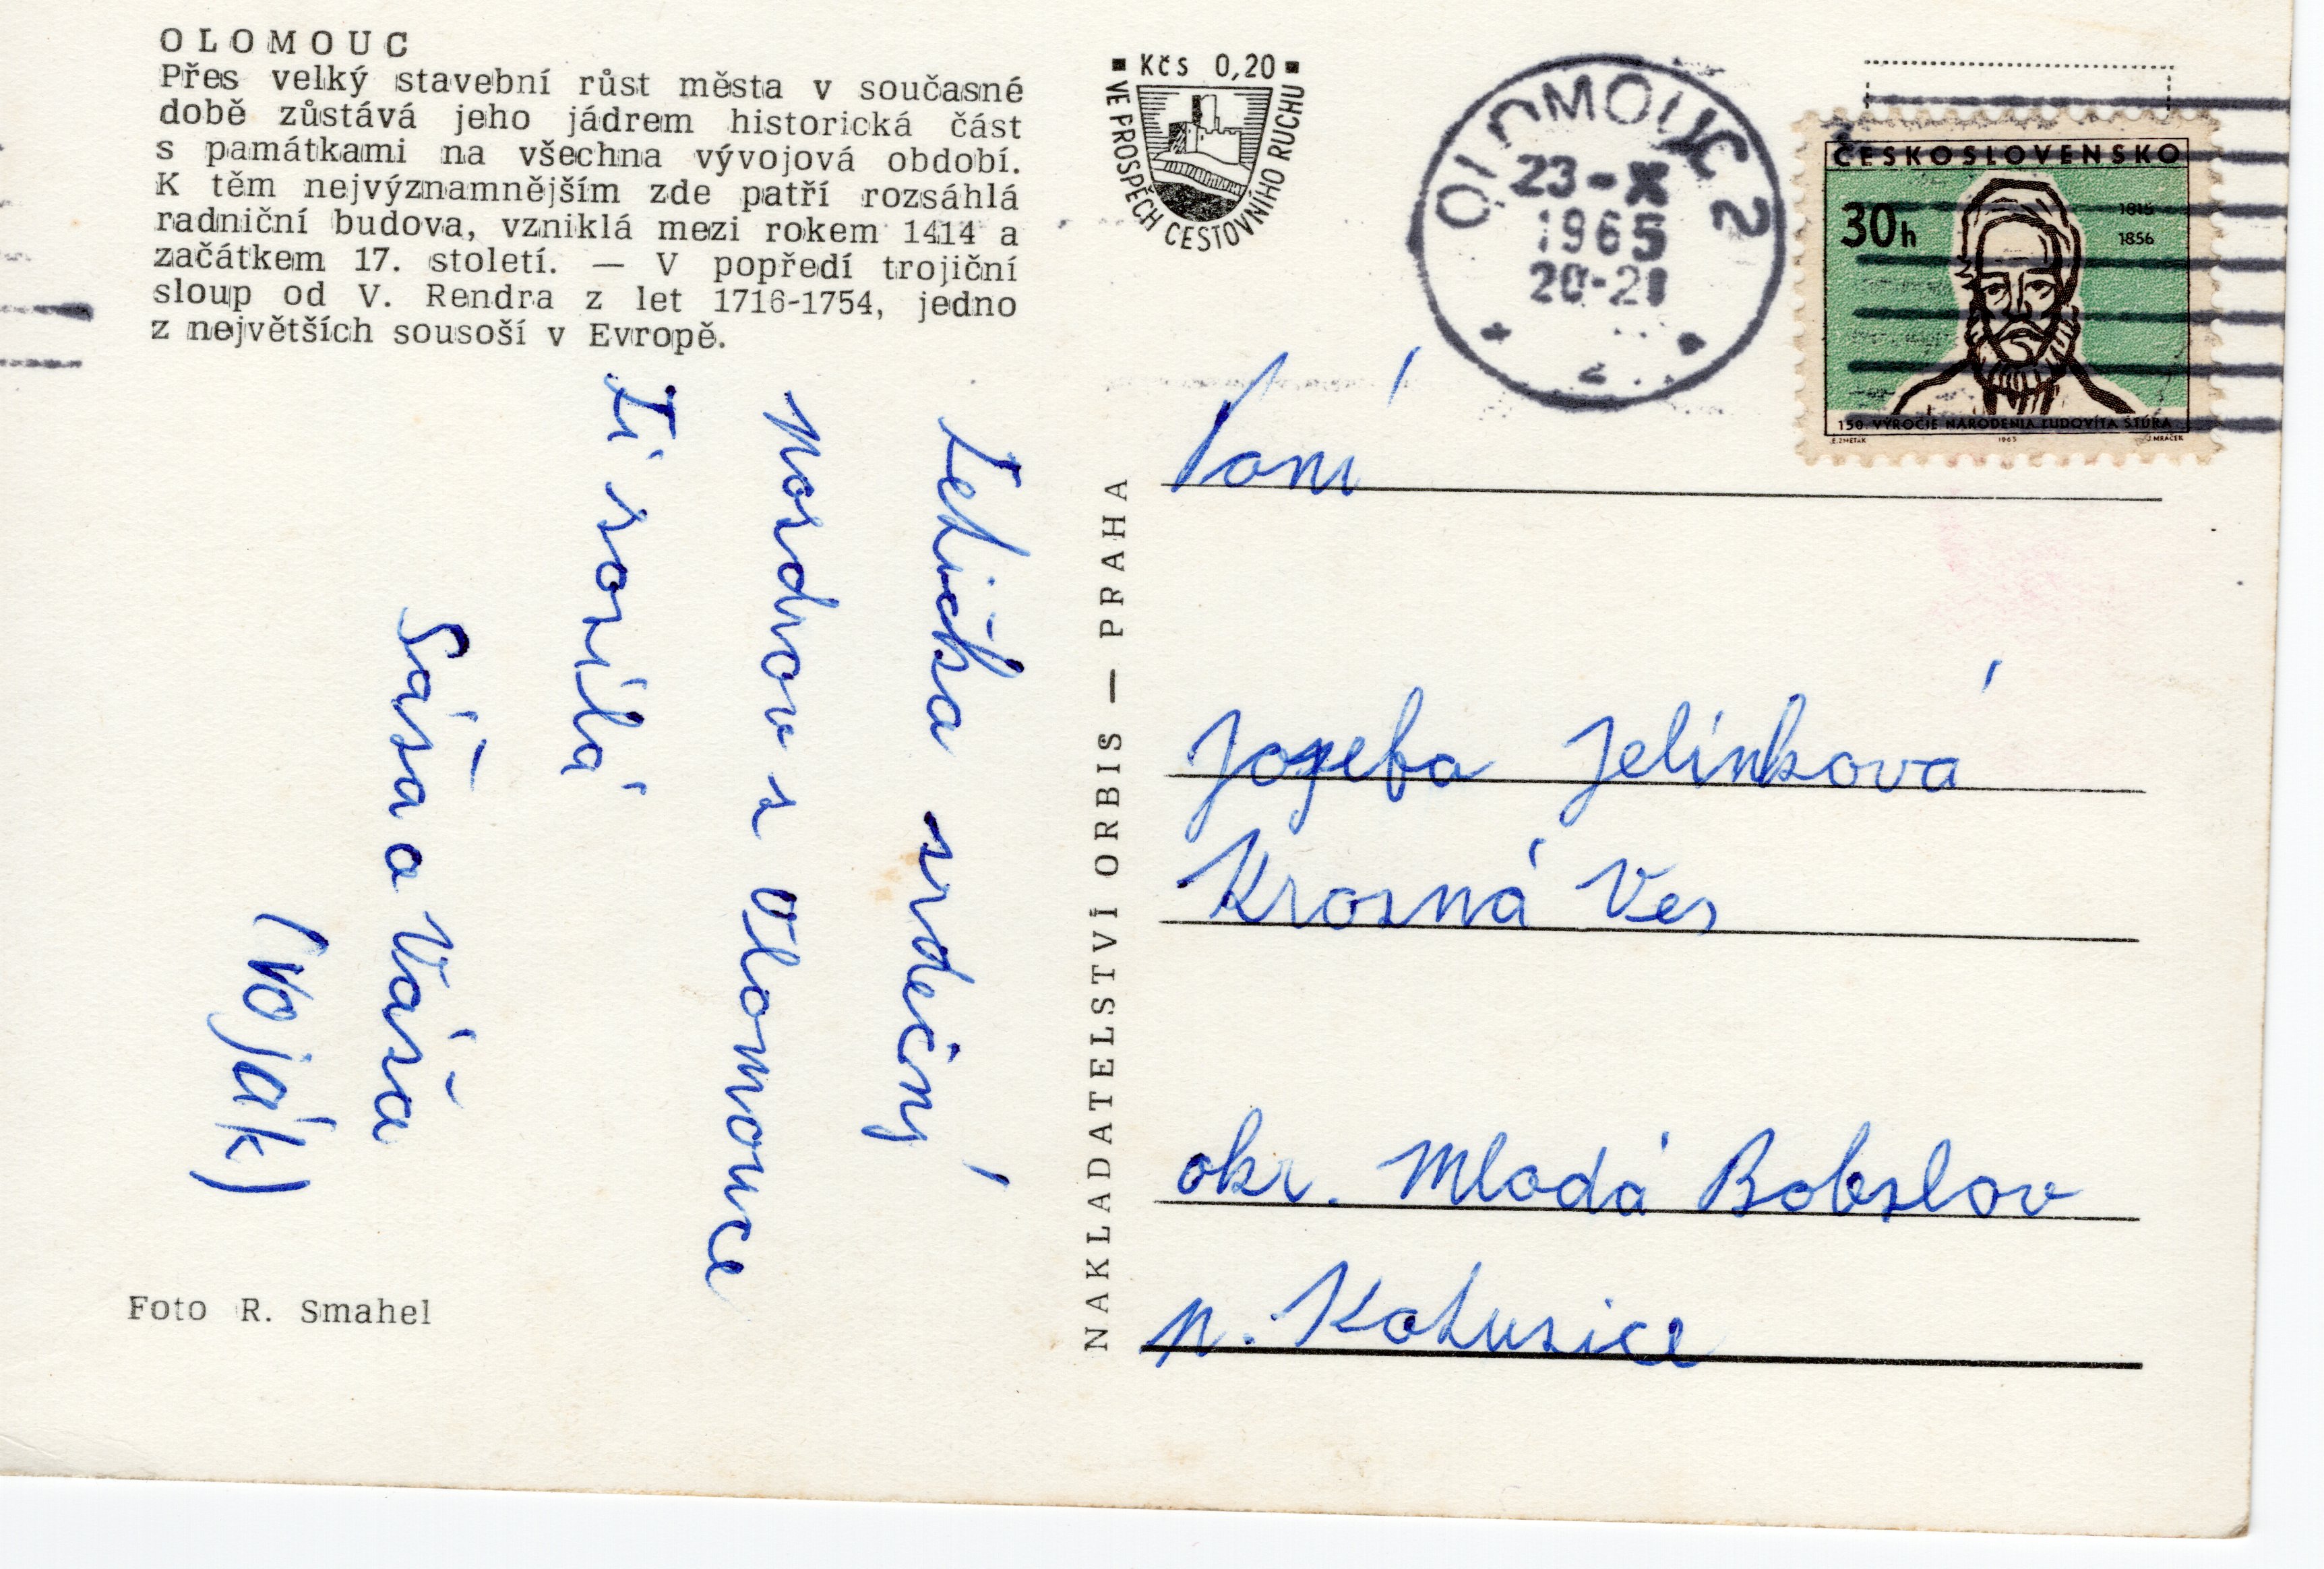 OLOMOUC
Přes velký stavební růst města v současné
době zůstává jeho jádrem historická část
s památkami na všechna vývojová období.
K těm nejvýznamnějším zde patří rozsáhlá
radniční budova, vzniklá mezi rokem 1414 a
začátkem 17. století. — V popředí trojiční
sloup od V. Rendra z let 1716-1754, jedno
z největších sousoší v Evropě.
Tetička srdečný
pozdrav z Olomouce
Ti posílá
Sáša a Váša
(voják)
Foto R. Smahel
NAKLADATELSTVÍ ORBIS — PRAHA
Kčs 0,20
VE PROSPĚCH CESTOVNÍHO RUCHU
OLOMOUC 2
23-X
1965
20-21
2
ČESKOSLOVENSKO
30h
1815
1856
150. VÝROČIE NARODENIA ĽUDOVÍTA ŠTÚRA
1965
J. MRÁČEK
Paní
Jozefa Jelínková
Krásná Ves
okr. Mladá Boleslav
p. Katusice